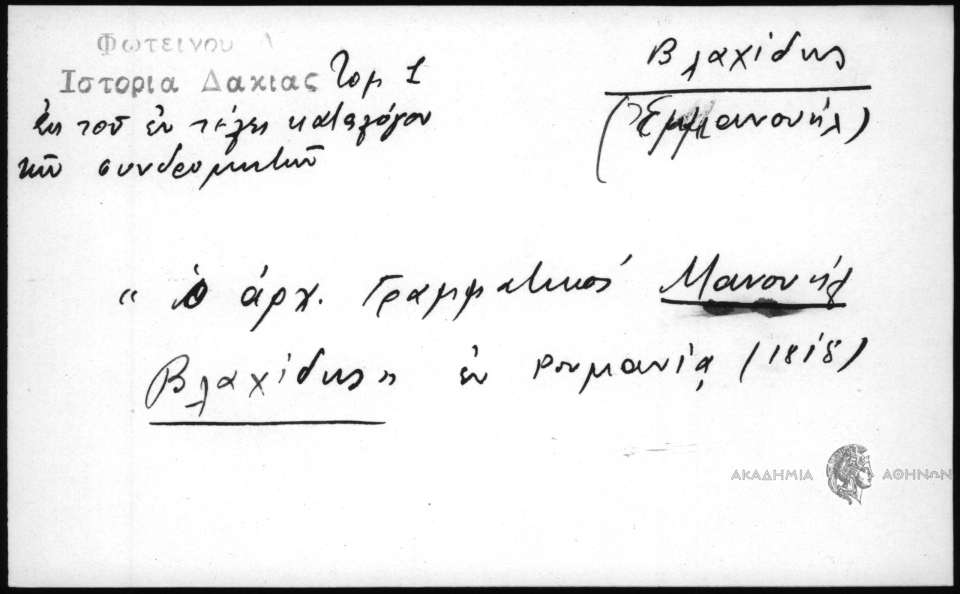 Φωτεινου
Ιστορια Δακιας Τομ 1
ἐκ τοῦ ἐν τέλει καταλόγου
τῶν συνδρομητῶν
Βλαχίδης
(Ἐμμανουήλ)
“ ὁ ἀρχ. Γραμματικός Μανουήλ
Βλαχίδης” ἐν Ρουμανίᾳ (1818)
ΑΚΑΔΗΜΙΑ ΑΘΗΝΩΝ